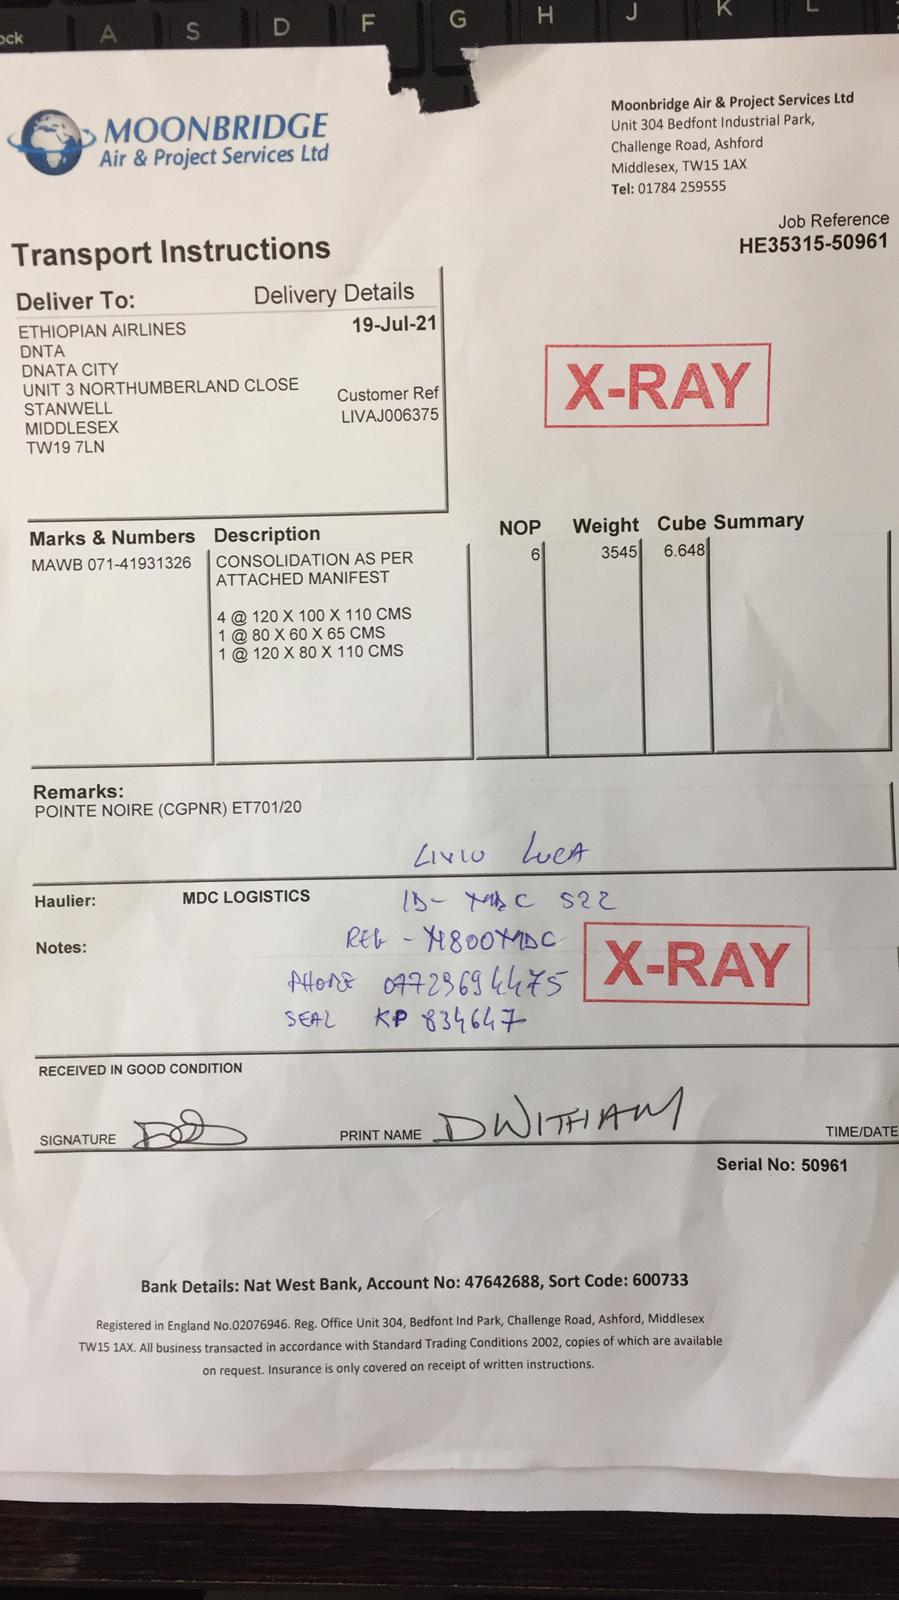 ock A S D F G H J K L
MOONBRIDGE
Air & Project Services Ltd
Moonbridge Air & Project Services Ltd
Unit 304 Bedfont Industrial Park,
Challenge Road, Ashford
Middlesex, TW15 1AX
Tel: 01784 259555
Job Reference
HE35315-50961
Transport Instructions
Deliver To: Delivery Details
ETHIOPIAN AIRLINES 19-Jul-21
DNTA
DNATA CITY
UNIT 3 NORTHUMBERLAND CLOSE
STANWELL
MIDDLESEX
TW19 7LN
Customer Ref
LIVAJ006375
X-RAY
Marks & Numbers Description NOP Weight Cube Summary
MAWB 071-41931326 CONSOLIDATION AS PER 6 3545 6.648
ATTACHED MANIFEST
4 @ 120 X 100 X 110 CMS
1 @ 80 X 60 X 65 CMS
1 @ 120 X 80 X 110 CMS
Remarks:
POINTE NOIRE (CGPNR) ET701/20
LIVIU LUCA
Haulier: MDC LOGISTICS ID- MDC 522
Notes: REG - M800MDC
PHONE 07723694475
SEAL KP 834647
X-RAY
RECEIVED IN GOOD CONDITION
SIGNATURE PRINT NAME D WITHAM TIME/DATE
Serial No: 50961
Bank Details: Nat West Bank, Account No: 47642688, Sort Code: 600733
Registered in England No.02076946. Reg. Office Unit 304, Bedfont Ind Park, Challenge Road, Ashford, Middlesex
TW15 1AX. All business transacted in accordance with Standard Trading Conditions 2002, copies of which are available
on request. Insurance is only covered on receipt of written instructions.